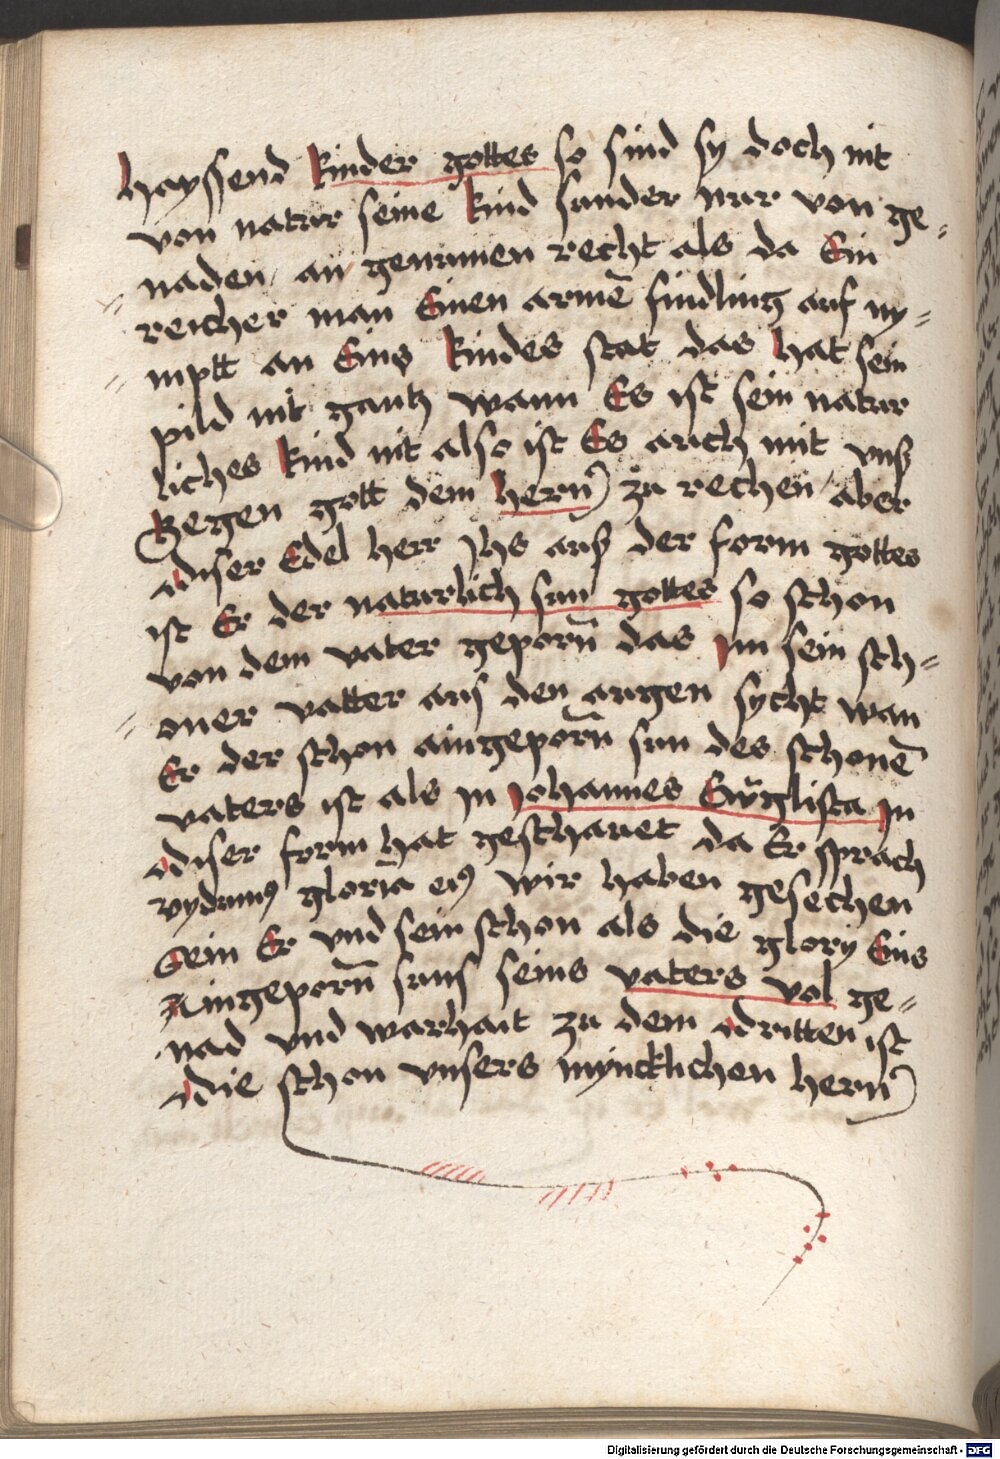 hayssend kinder gottes so sind sy doch nit
von natur seine kind sunder nur von ge=
naden an genumen recht als da Ein
reicher man Einen armē findling auf ny=
mptt an Eins kindes stat das hat sein
pild nit gantz wann Es ist sein natur
liches kind nit also ist Es auch mit vnß
Gegen gott dem hern zu rechen aber
diser Edel herr Jhs auß der form gottes
ist Er der naturlich sun gottes so schon
von dem vater geporn̄ das im sein sch=
oner vatter aus den augen sycht wan
Er der schon aingeporn̄ sun des schonē
vaters ist als in Johannes Ewglista in
diser form hat geschauet da Er sprach
vydimus gloria eius wir haben gesechen
Sein Er vnd sein schon als die glory Eins
Aingeporn̄ suns seins vaters vol ge=
nad vnd warhait zu dem dritten ist
die schon vnsers myncklichen hern
Digitalisierung gefördert durch die Deutsche Forschungsgemeinschaft - DFG